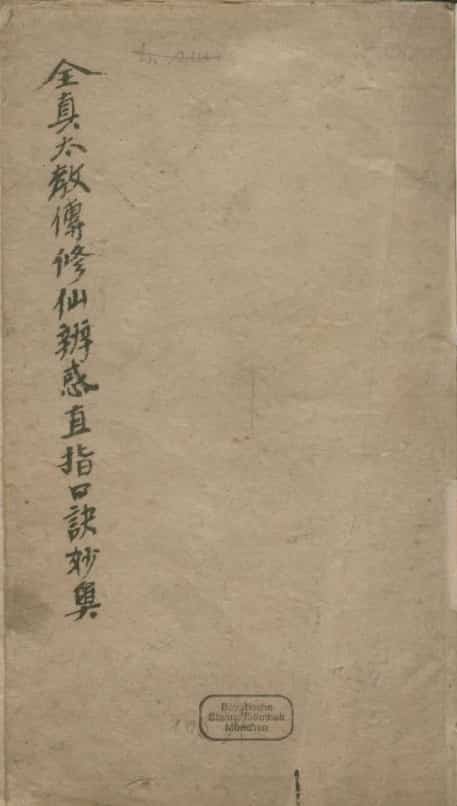 全真大教傳修仙辨惑直指口訣妙奥
Bayerische
Staatsbibliothek
München